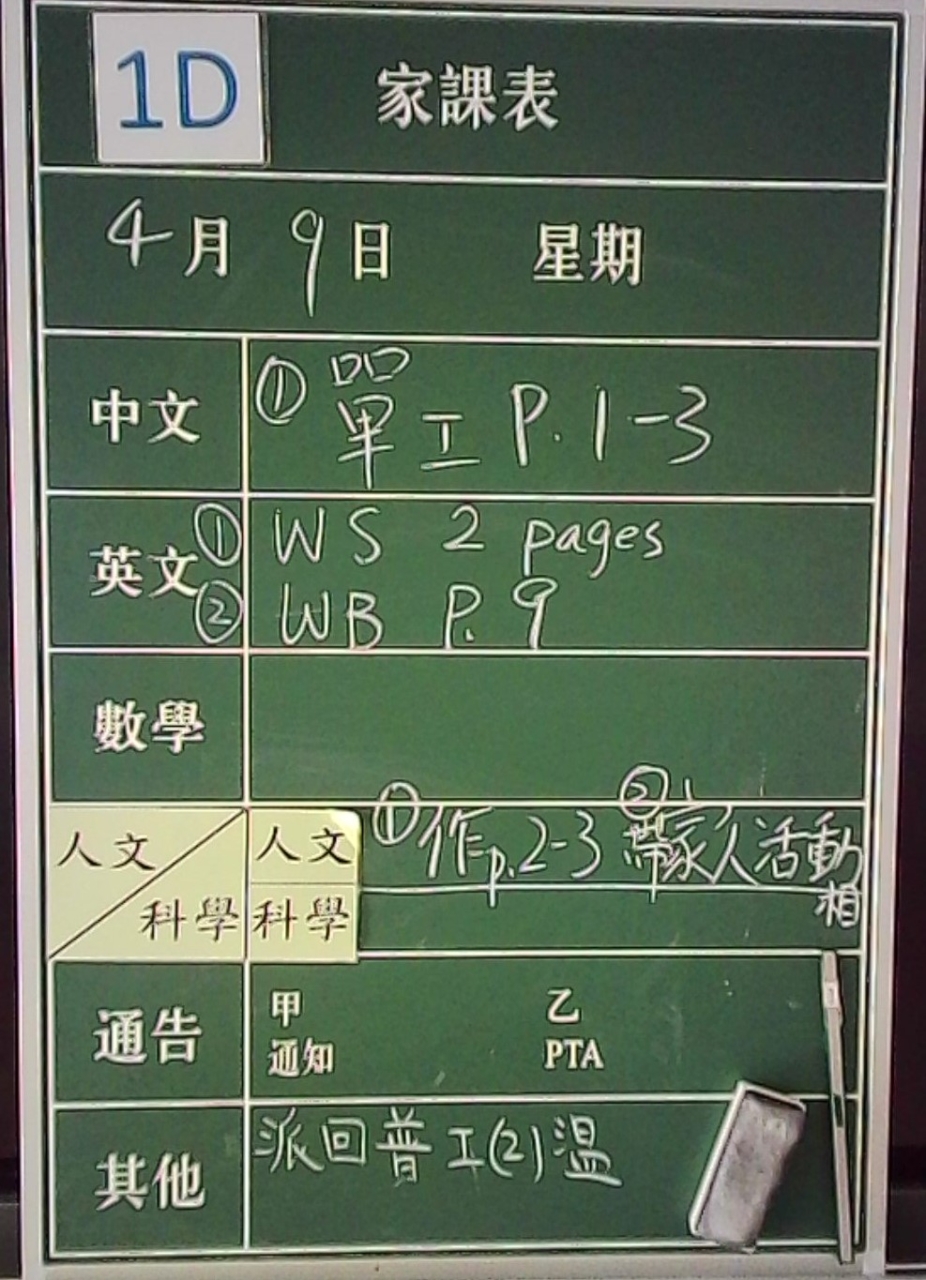 1D 家課表
4月 9日 星期
中文 ① 單工 P.1-3
英文 ① WS 2 pages
② WB P.9
數學
人文 科學 人文 ①作p.2-3 ②帶家人活動相
科學
通告 甲 乙
通知 PTA
其他 派回普工(2)溫